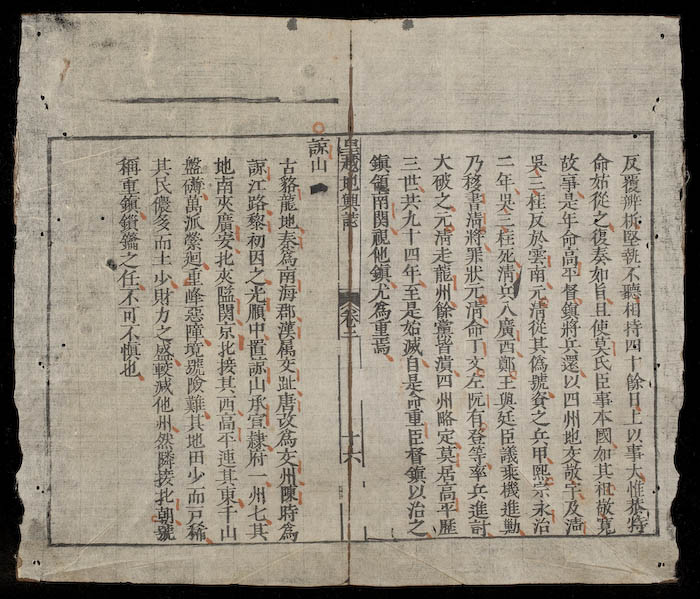 反覆辨析堅執不聽相持四十餘日上以事大惟恭特
命姑從之復奏如旨且使莫氏臣事本國如其祖敬寬
故事是年命高平督鎮將兵還以四州地交敬宇及濤
吳三柱反於雲南元清從其偽號資之兵甲熙宗永治
二年吳三柱死清兵入廣西鄭王與廷臣議乘機進勦
乃移書清將罪狀元清命丁文左阮有登等率兵進討
大破之元清走龍州餘黨皆潰四州略定莫居高平歷
三世共九十四年至是始滅自是命重臣督鎮以治之
鎮領南関視他鎮尤為重焉
皇越地輿誌 卷二 十六
諒山
古貉龍地秦為南海郡漢属交趾唐改為交州陳時為
諒江路黎初因之光順中置諒山承宣隷府一州七其
地南夾廣安北夾隘関京北接其西高平連其東千山
盤礴萬派縈迴重峰惡障境號險難其地田少而戸稀
其民儂多而土少財力之盛較減他州然隣接北朝號
稱重鎮鎖鑰之任不可不慎也